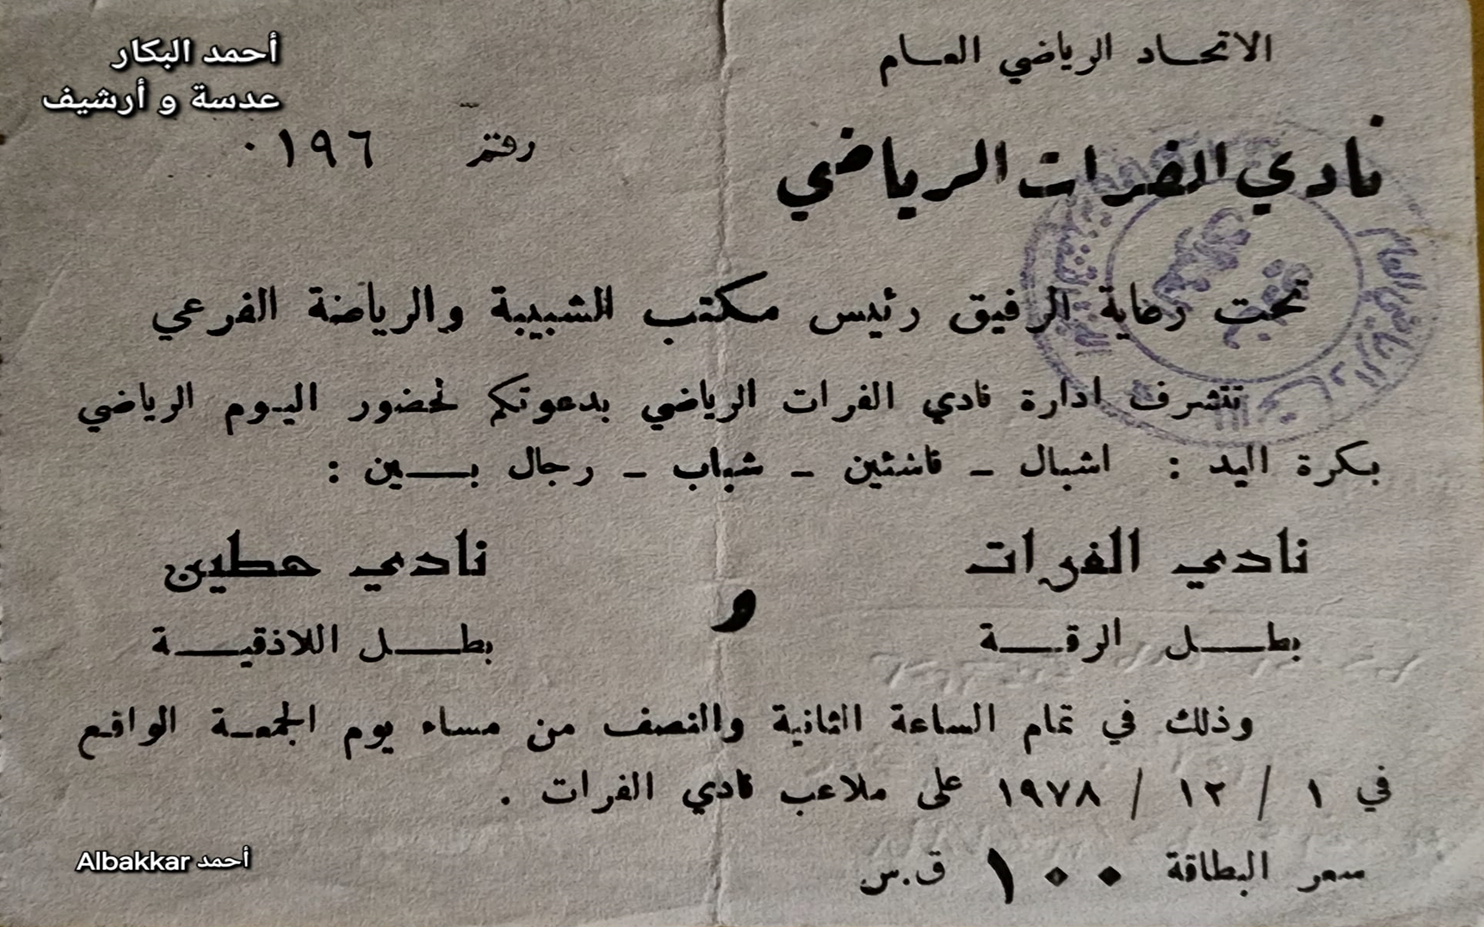 أحمد البكار
عدسة و أرشيف
الاتحاد الرياضي العام
رقم ٠١٩٦
نادي الفرات الرياضي
تحت رعاية الرفيق رئيس مكتب الشبيبة والرياضة الفرعي
تتشرف ادارة نادي الفرات الرياضي بدعوتكم لحضور اليوم الرياضي
بكرة اليد : اشبال - ناشئين - شباب - رجال بين :
نادي الفرات و نادي حطين
بطل الرقة بطل اللاذقية
وذلك في تمام الساعة الثانية والنصف من مساء يوم الجمعة الواقع
في ١ / ١٢ / ١٩٧٨ على ملاعب نادي الفرات .
سعر البطاقة ١٠٠ ق.س
أحمد Albakkar